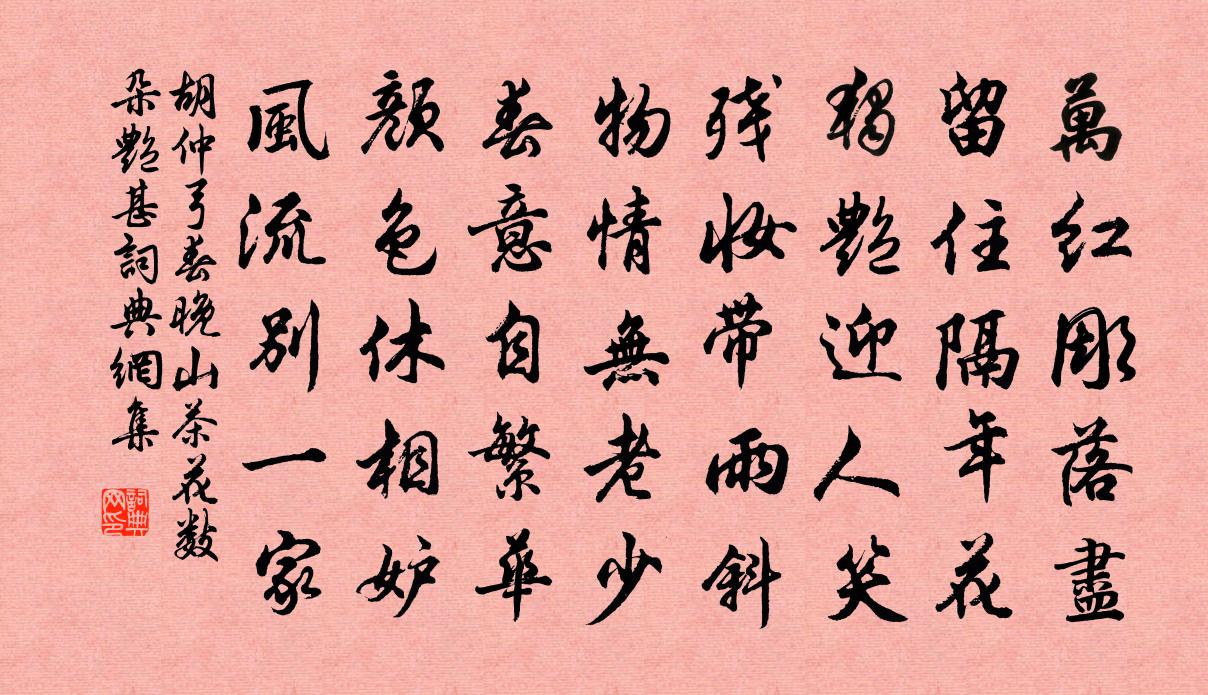 萬紅彫落盡
留住隔年花
獨艷迎人笑
残妝帶雨斜
物情無老少
春意自繁華
顏色休相妒
風流別一家
胡仲弓春晚山茶花数
朵艷甚詞典網集
詞典网印